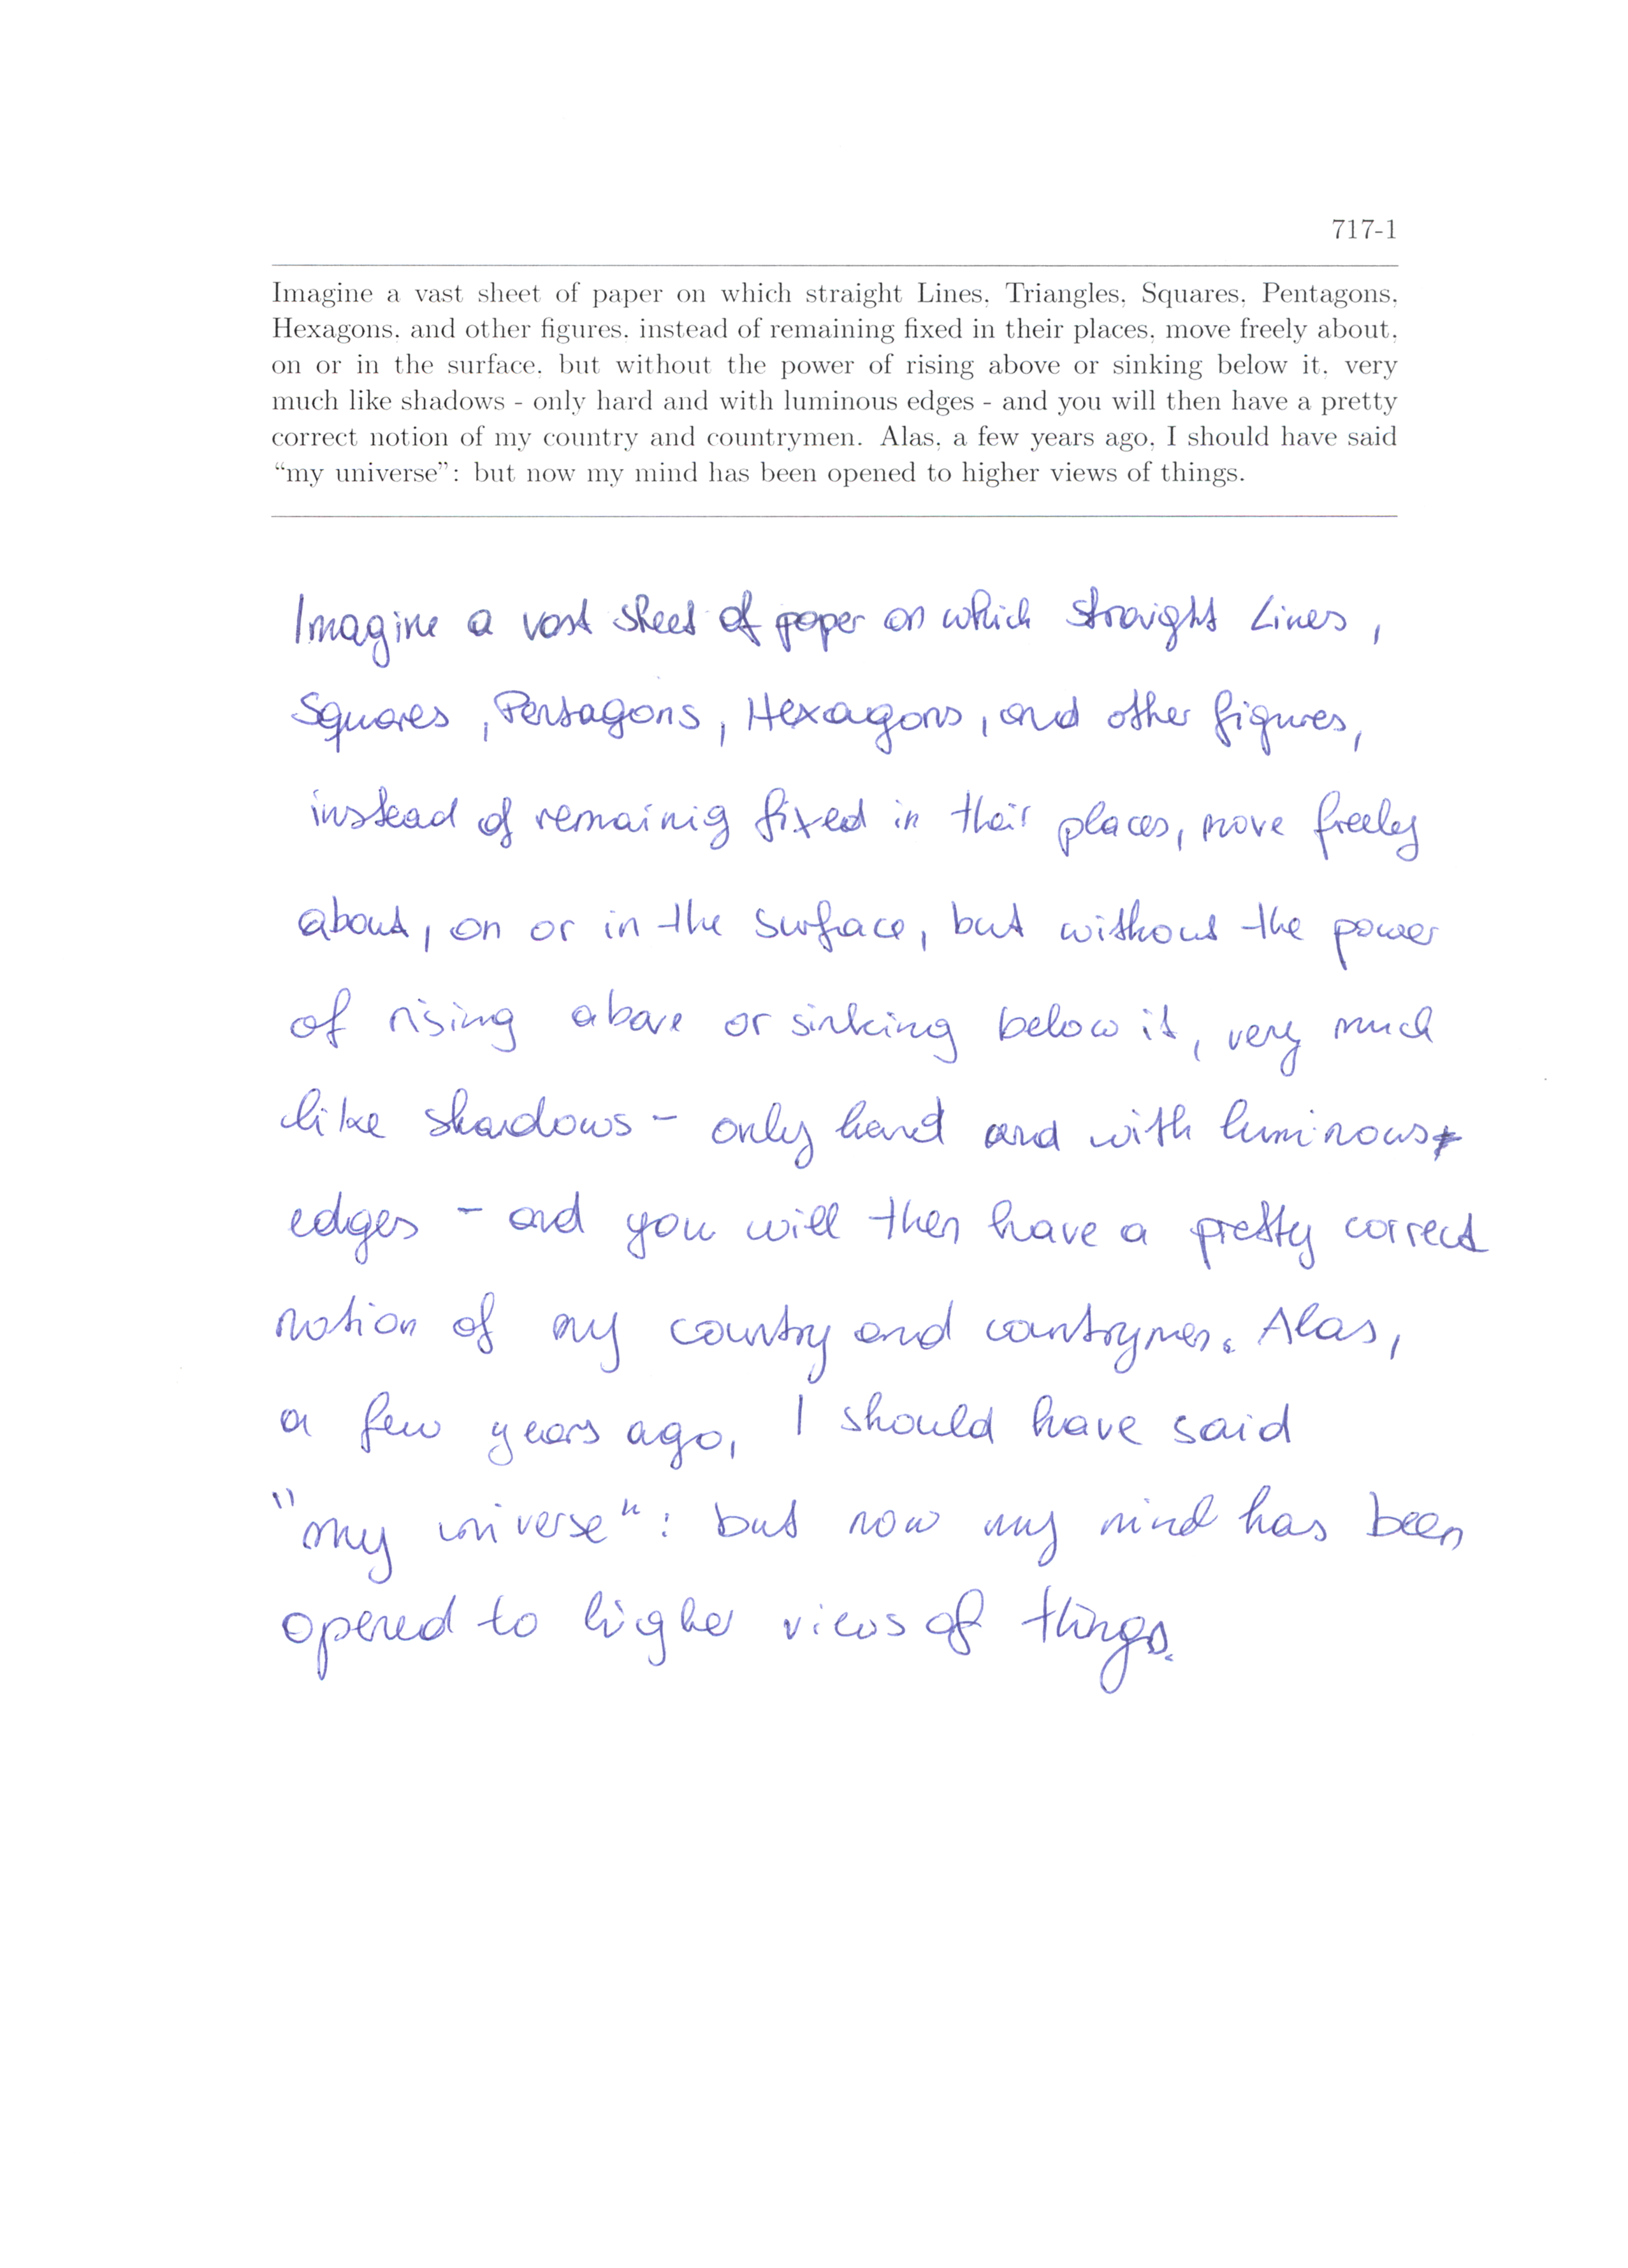 717-1
Imagine a vast sheet of paper on which straight Lines, Triangles, Squares, Pentagons,
Hexagons, and other figures, instead of remaining fixed in their places, move freely about,
on or in the surface, but without the power of rising above or sinking below it, very
much like shadows - only hard and with luminous edges - and you will then have a pretty
correct notion of my country and countrymen. Alas, a few years ago, I should have said
“my universe”: but now my mind has been opened to higher views of things.
Imagine a vast sheet of paper on which straight Lines,
Squares, Pentagons, Hexagons, and other figures,
instead of remainig fixed in their places, move freely
about, on or in the surface, but without the power
of rising above or sinking below it, very much
like shadows - only hard and with luminous
edges - and you will then have a pretty correct
notion of my country and countrymen. Alas,
a few years ago, I should have said
"my universe": but now my mind has been
opened to higher views of things.